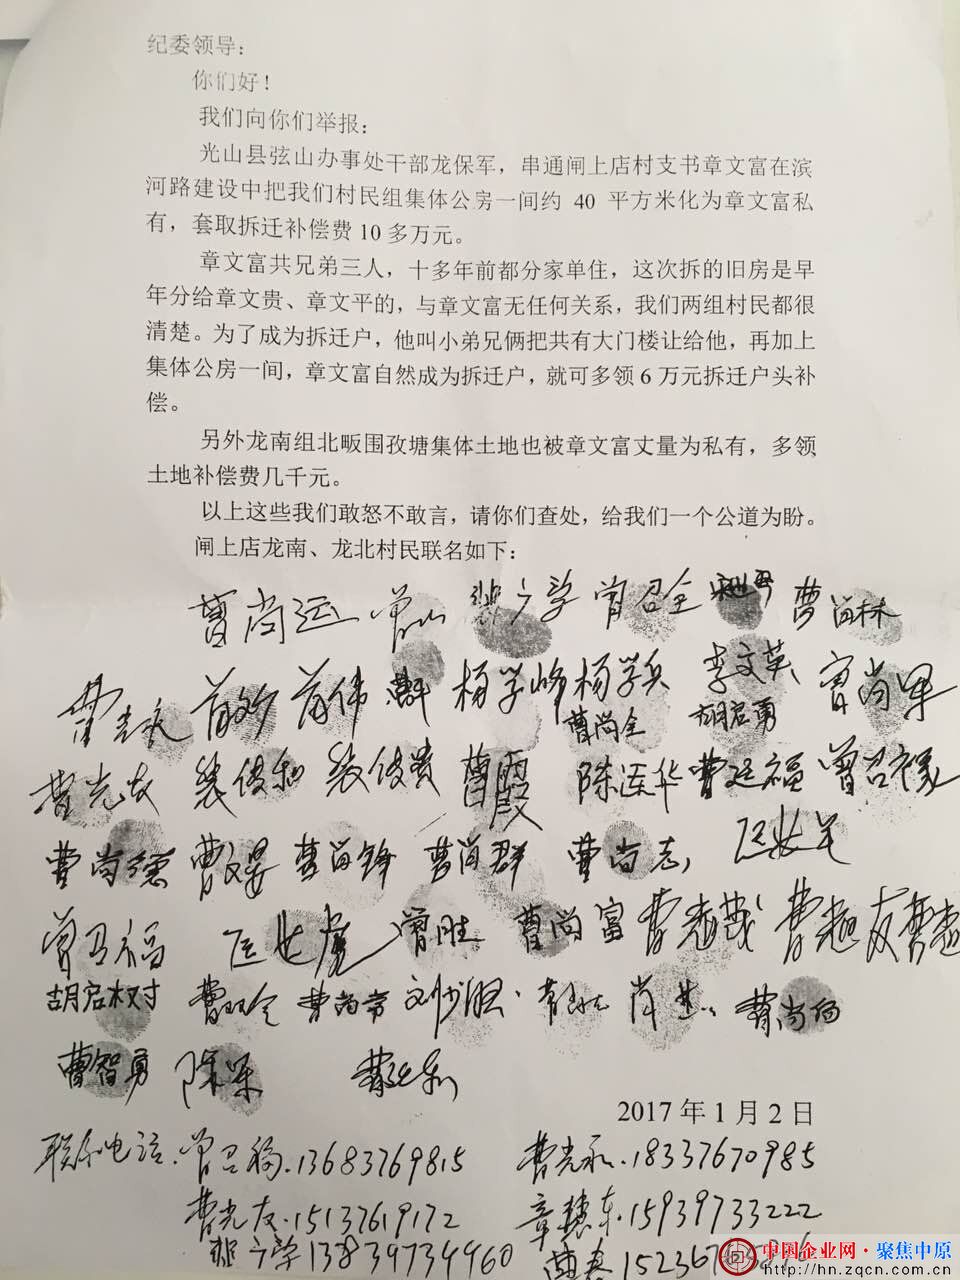 纪委领导：
你们好！
我们向你们举报：
光山县弦山办事处干部龙保军，串通闸上店村支书章文富在滨
河路建设中把我们村民组集体公房一间约 40 平方米化为章文富私
有，套取拆迁补偿费 10 多万元。
章文富共兄弟三人，十多年前都分家单住，这次拆的旧房是早
年分给章文贵、章文平的，与章文富无任何关系，我们两组村民都很
清楚。为了成为拆迁户，他叫小弟兄俩把共有大门楼让给他，再加上
集体公房一间，章文富自然成为拆迁户，就可多领 6 万元拆迁户头补
偿。
另外龙南组北畈围孜塘集体土地也被章文富丈量为私有，多领
土地补偿费几千元。
以上这些我们敢怒不敢言，请你们查处，给我们一个公道为盼。
闸上店龙南、龙北村民联名如下：
曹尚运 曾召全 曹尚林
杨学峰 杨学兵 李文英 曹尚军
曹尚全 胡启勇
曹光友 裴俊和 裴俊贵 曹霞 陈连华 曹廷福 曾召禄
曹尚德 曹文晏 曹尚锋 曹尚群 曹尚志
曾召福 曾胜 曹尚富
胡启树 曹尚常
曹智勇 陈军
2017 年 1 月 2 日
联系电话：曾召福.13683769815 曹光永.18337670985
曹光友.15137619172 章慧东.15939733222
13839734960
中国企业网·聚焦中原
http://hn.zqcn.com.cn